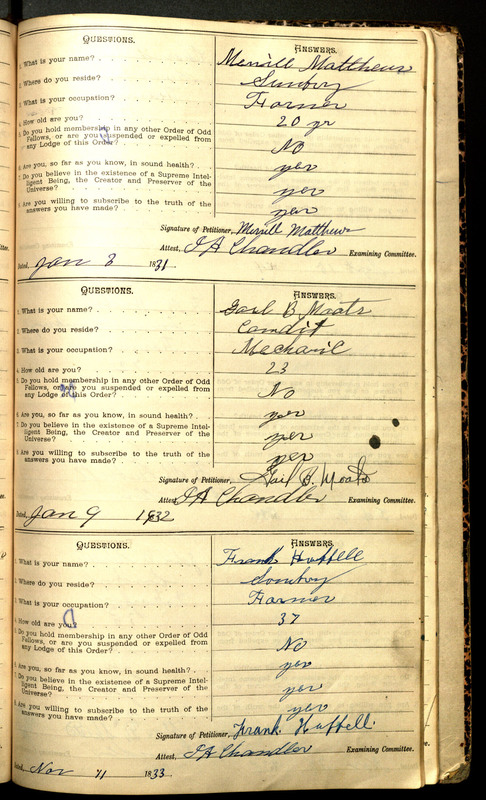 QUESTIONS. ANSWERS.
1. What is your name? Merrill Matthews
2. Where do you reside? Sunbry
3. What is your occupation? Farmer
4. How old are you? 20 yr
5. Do you hold membership in any other Order of Odd
Fellows, or are you suspended or expelled from
any Lodge of this Order? No
6. Are you, so far as you know, in sound health? yes
7. Do you believe in the existence of a Supreme Intel-
ligent Being, the Creator and Preserver of the
Universe? yes
8. Are you willing to subscribe to the truth of the
answers you have made? yes
Signature of Petitioner, Merrill Matthews
Attest, I A Chandler Examining Committee.
Dated, Jan 8 1831
QUESTIONS. ANSWERS.
1. What is your name? Gail B Moats
2. Where do you reside? Condit
3. What is your occupation? Mechanic
4. How old are you? 23
5. Do you hold membership in any other Order of Odd
Fellows, or are you suspended or expelled from
any Lodge of this Order? No
6. Are you, so far as you know, in sound health? yes
7. Do you believe in the existence of a Supreme Intel-
ligent Being, the Creator and Preserver of the
Universe? yes
8. Are you willing to subscribe to the truth of the
answers you have made? yes
Signature of Petitioner, Gail B. Moats
Attest, I A Chandler Examining Committee.
Dated, Jan 9 1932
QUESTIONS. ANSWERS.
1. What is your name? Frank Huffell
2. Where do you reside? Sunbry
3. What is your occupation? Farmer
4. How old are you? 37
5. Do you hold membership in any other Order of Odd
Fellows, or are you suspended or expelled from
any Lodge of this Order? No
6. Are you, so far as you know, in sound health? yes
7. Do you believe in the existence of a Supreme Intel-
ligent Being, the Creator and Preserver of the
Universe? yes
8. Are you willing to subscribe to the truth of the
answers you have made? yes
Signature of Petitioner, Frank Huffell
Attest, I A Chandler Examining Committee.
Dated, Nov 11 1833